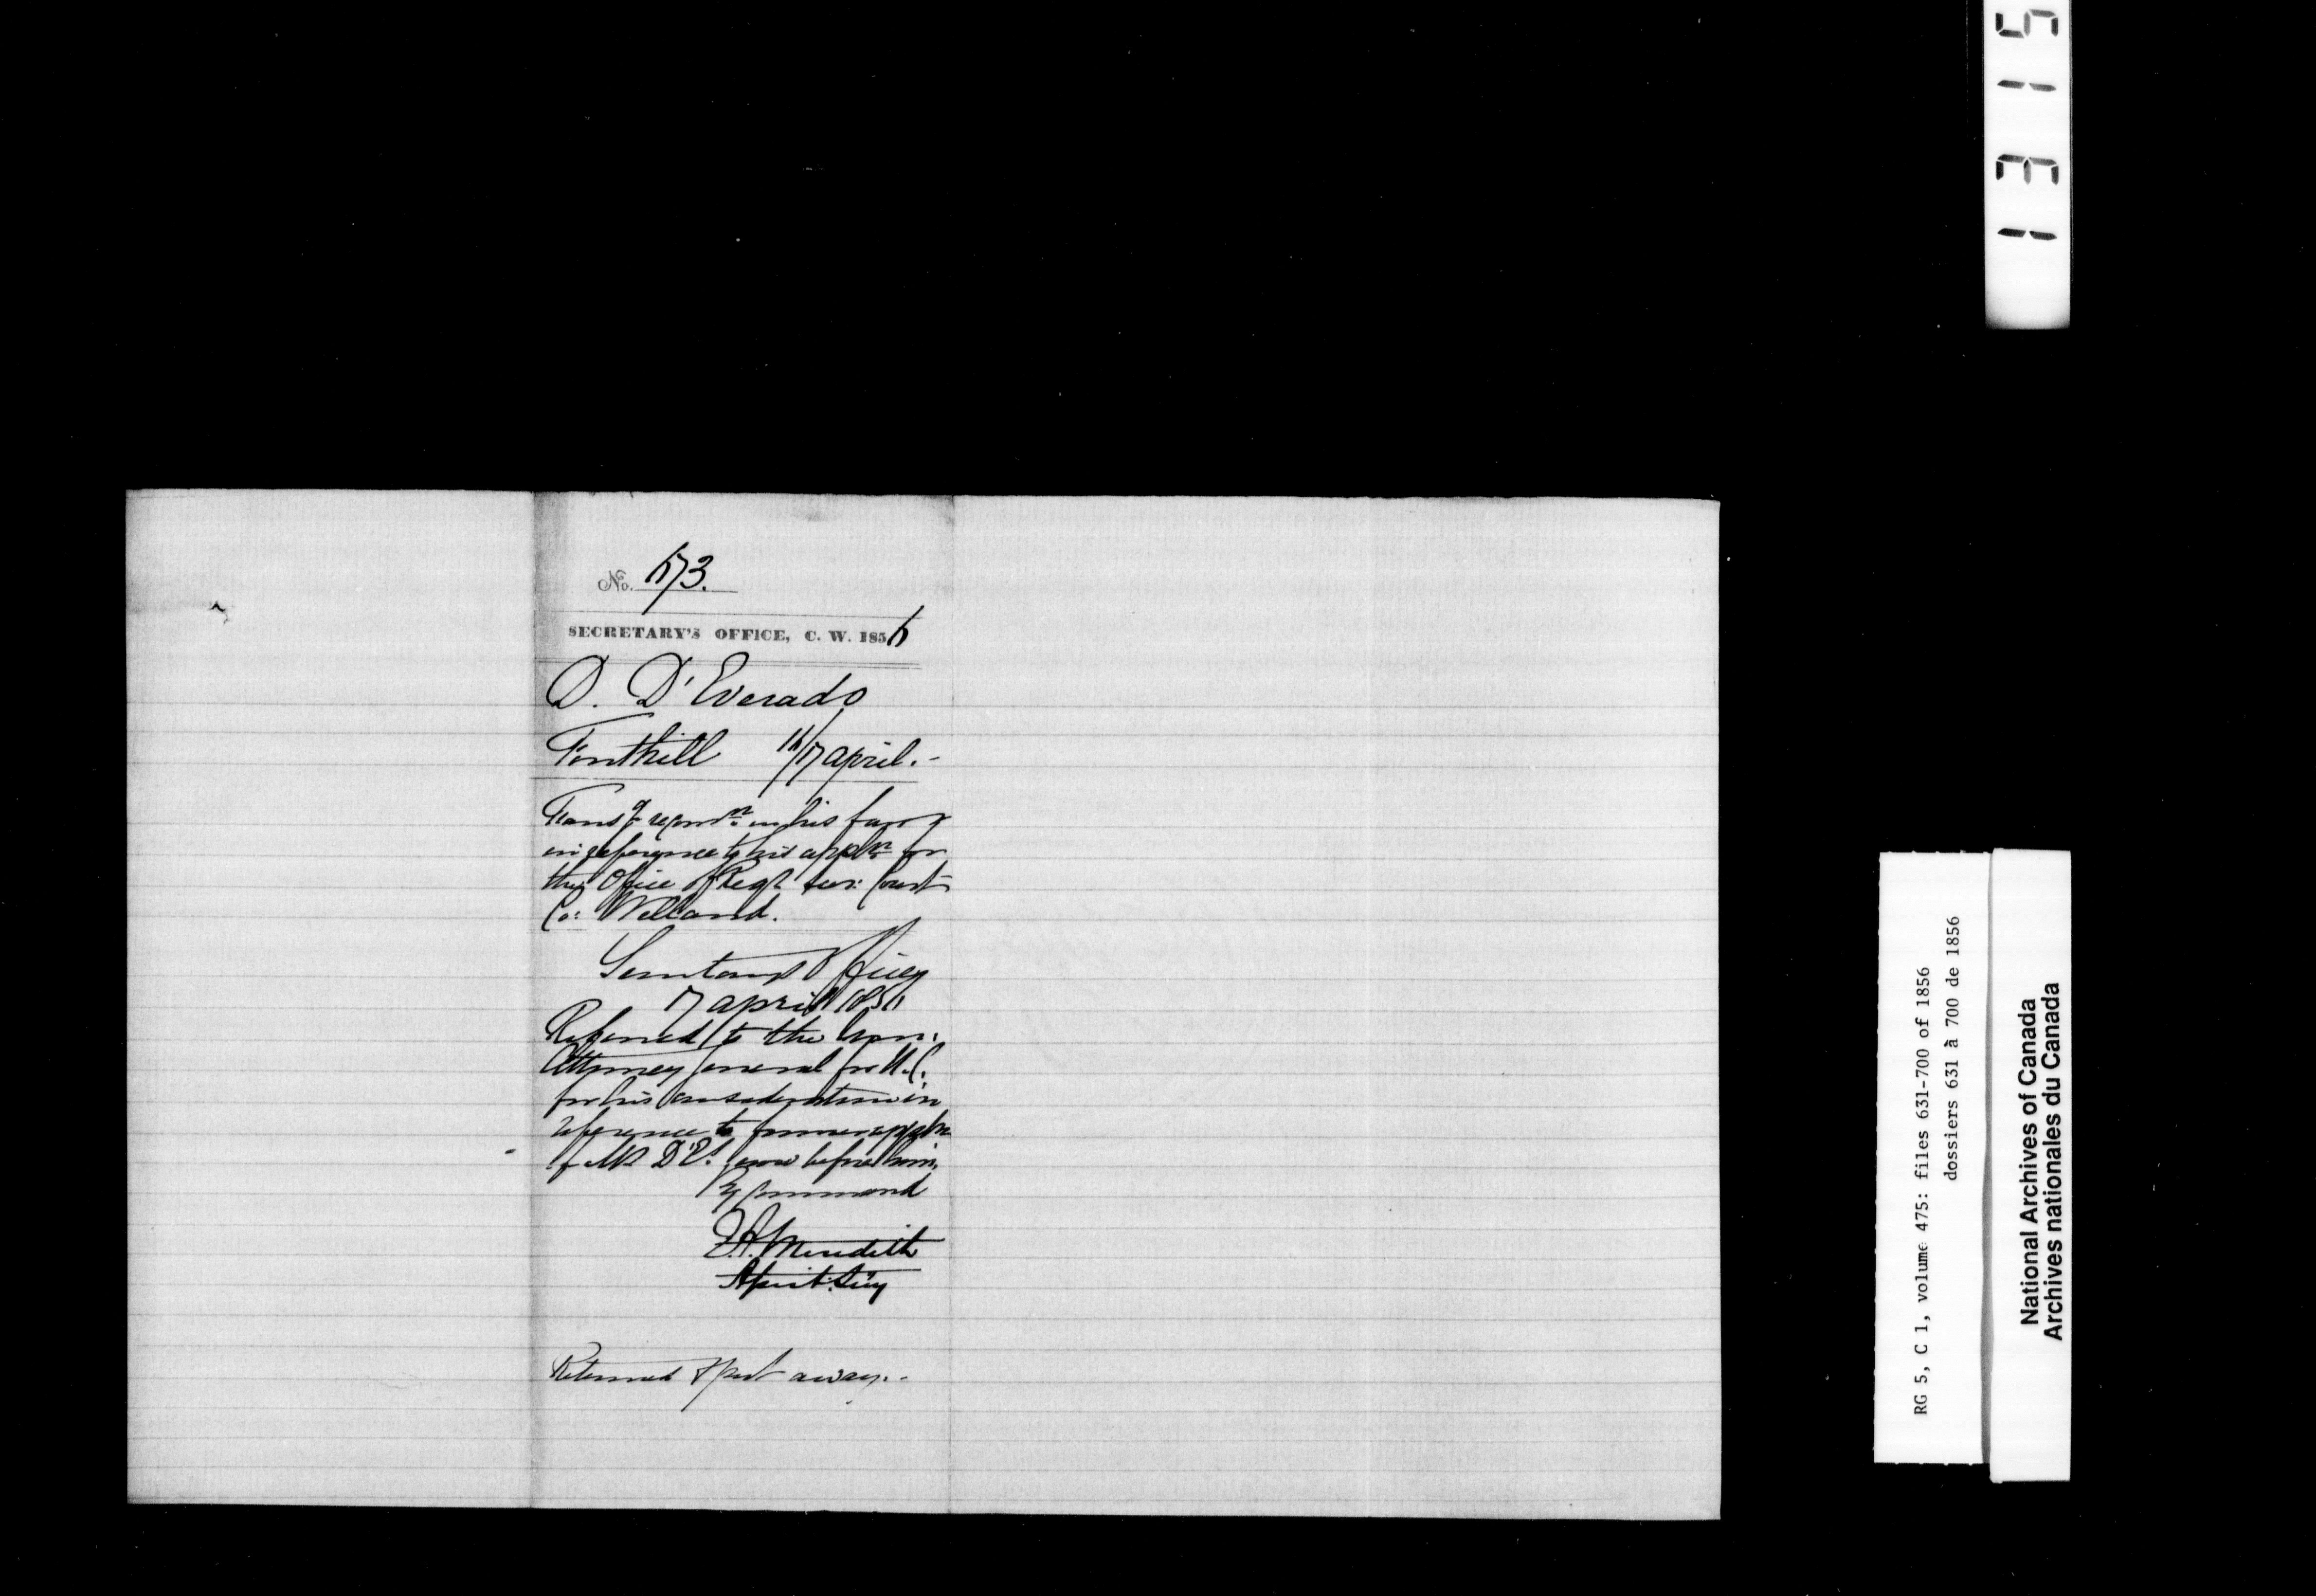 No. 673.
SECRETARY'S OFFICE, C. W. 1856
D. D'Everado
Fonthill 16/17 April. -
Transg recomn in his favor
in reference to his appln for
the Office of Regr Surr: Court
Co: Welland.
Secretary's Office
17 April 1856
Referred to the Hon:
Attorney General for U. C.
for his consideration in
reference to former appln
of Mr D'E. now before him.
By Command
E. A. Meredith
Assist. Secy
Returned & put away. -
1315
RG 5, C 1, volume 475: files 631-700 of 1856
dossiers 631 à 700 de 1856
National Archives of Canada
Archives nationales du Canada